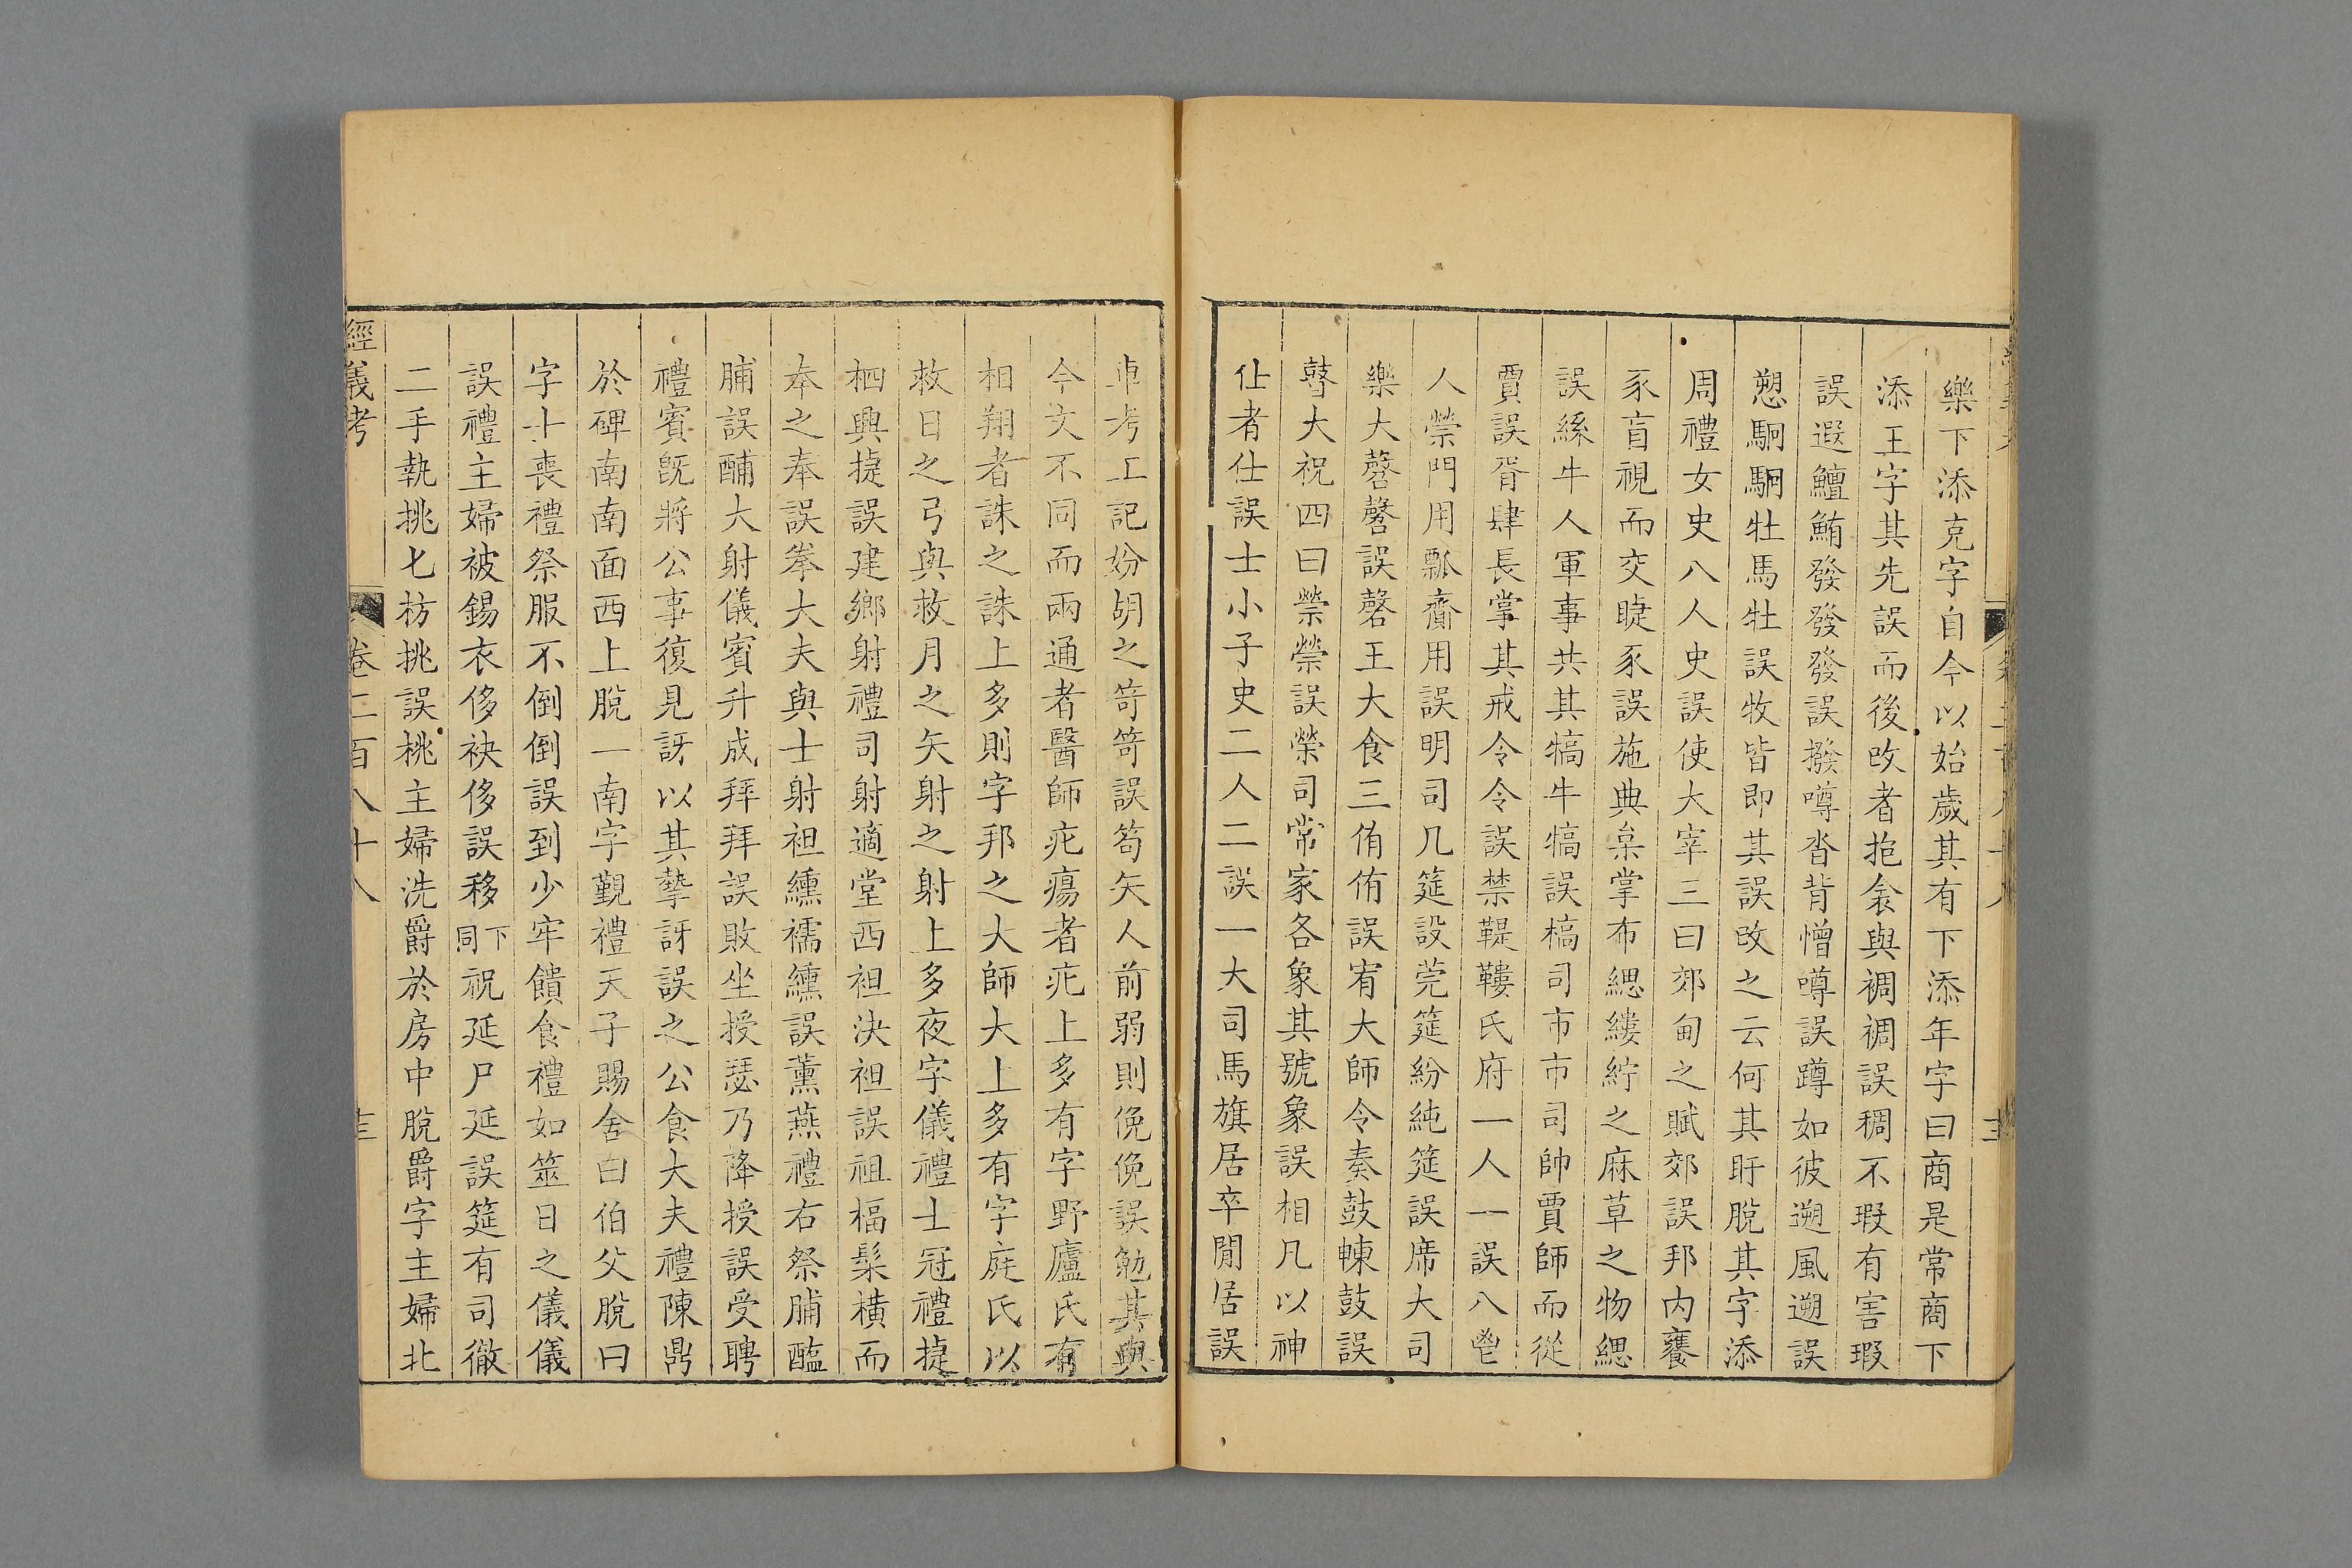 樂下添克字自今以始歲其有下添年字曰商是常商下
添王字其先誤而後改者抱衾與裯裯誤稠不瑕有害瑕
誤遐鱣鮪發發發誤撥噂沓背憎噂誤蹲如彼遡風遡誤
愬駉駉牡馬牡誤牧皆即其誤改之云何其盱脫其字添
周禮女史八人史誤使大宰三曰郊甸之賦郊誤邦內饔
豕盲視而交睫豕誤施典枲掌布緦縷紵之麻草之物緦
誤絲牛人軍事共其犒牛犒誤槁司市市司帥賈師而從
賈誤胥肆長掌其戒令令誤禁鞮鞻氏府一人一誤八鬯
人禜門用瓢齎用誤明司几筵設莞筵紛純筵誤席大司
樂大磬磬誤磬王大食三侑侑誤宥大師令奏鼓朄鼓誤
瞽大祝四曰禜禜誤榮司常家各象其號象誤相凡以神
仕者仕誤士小子史二人二誤一大司馬旗居卒閒居誤
車考工記妢胡之笴笴誤笱矢人前弱則俛俛誤勉其與
今文不同而兩通者醫師疕瘍者疕上多有字野廬氏有
相翔者誅之誅上多則字邦之大師大上多有字庭氏以
救日之弓與救月之矢射之射上多夜字儀禮士冠禮捷
柶興捷誤建鄉射禮司射適堂西袒決袒誤祖楅髤橫而
奉之奉誤拳大夫與士射袒纁襦纁誤薰燕禮右祭脯醢
脯誤酺大射儀賓升成拜拜誤敗坐授瑟乃降授誤受聘
禮賓旣將公事復見訝以其摯訝誤之公食大夫禮陳鼎
於碑南南面西上脫一南字覲禮天子賜舍曰伯父脫曰
字士喪禮祭服不倒倒誤到少牢饋食禮如筮日之儀儀
誤禮主婦被錫衣侈袂侈誤移下同祝延尸延誤筵有司徹
二手執挑匕枋挑誤桃主婦洗爵於房中脫爵字主婦北
經義考 卷二百八十八